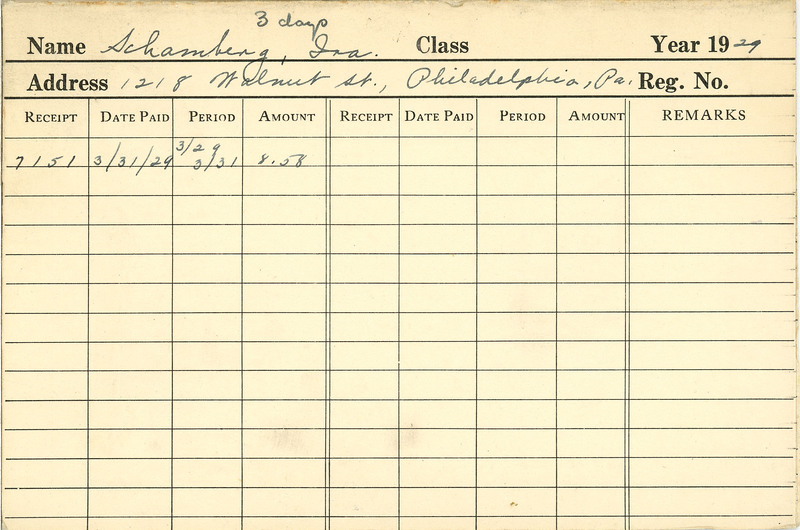 3 days
Name Schamberg, Ira. Class Year 1929
Address 1218 Walnut St., Philadelphia, Pa. Reg. No.
RECEIPT DATE PAID PERIOD AMOUNT RECEIPT DATE PAID PERIOD AMOUNT REMARKS
3/29
7151 3/31/29 3/31 8.58